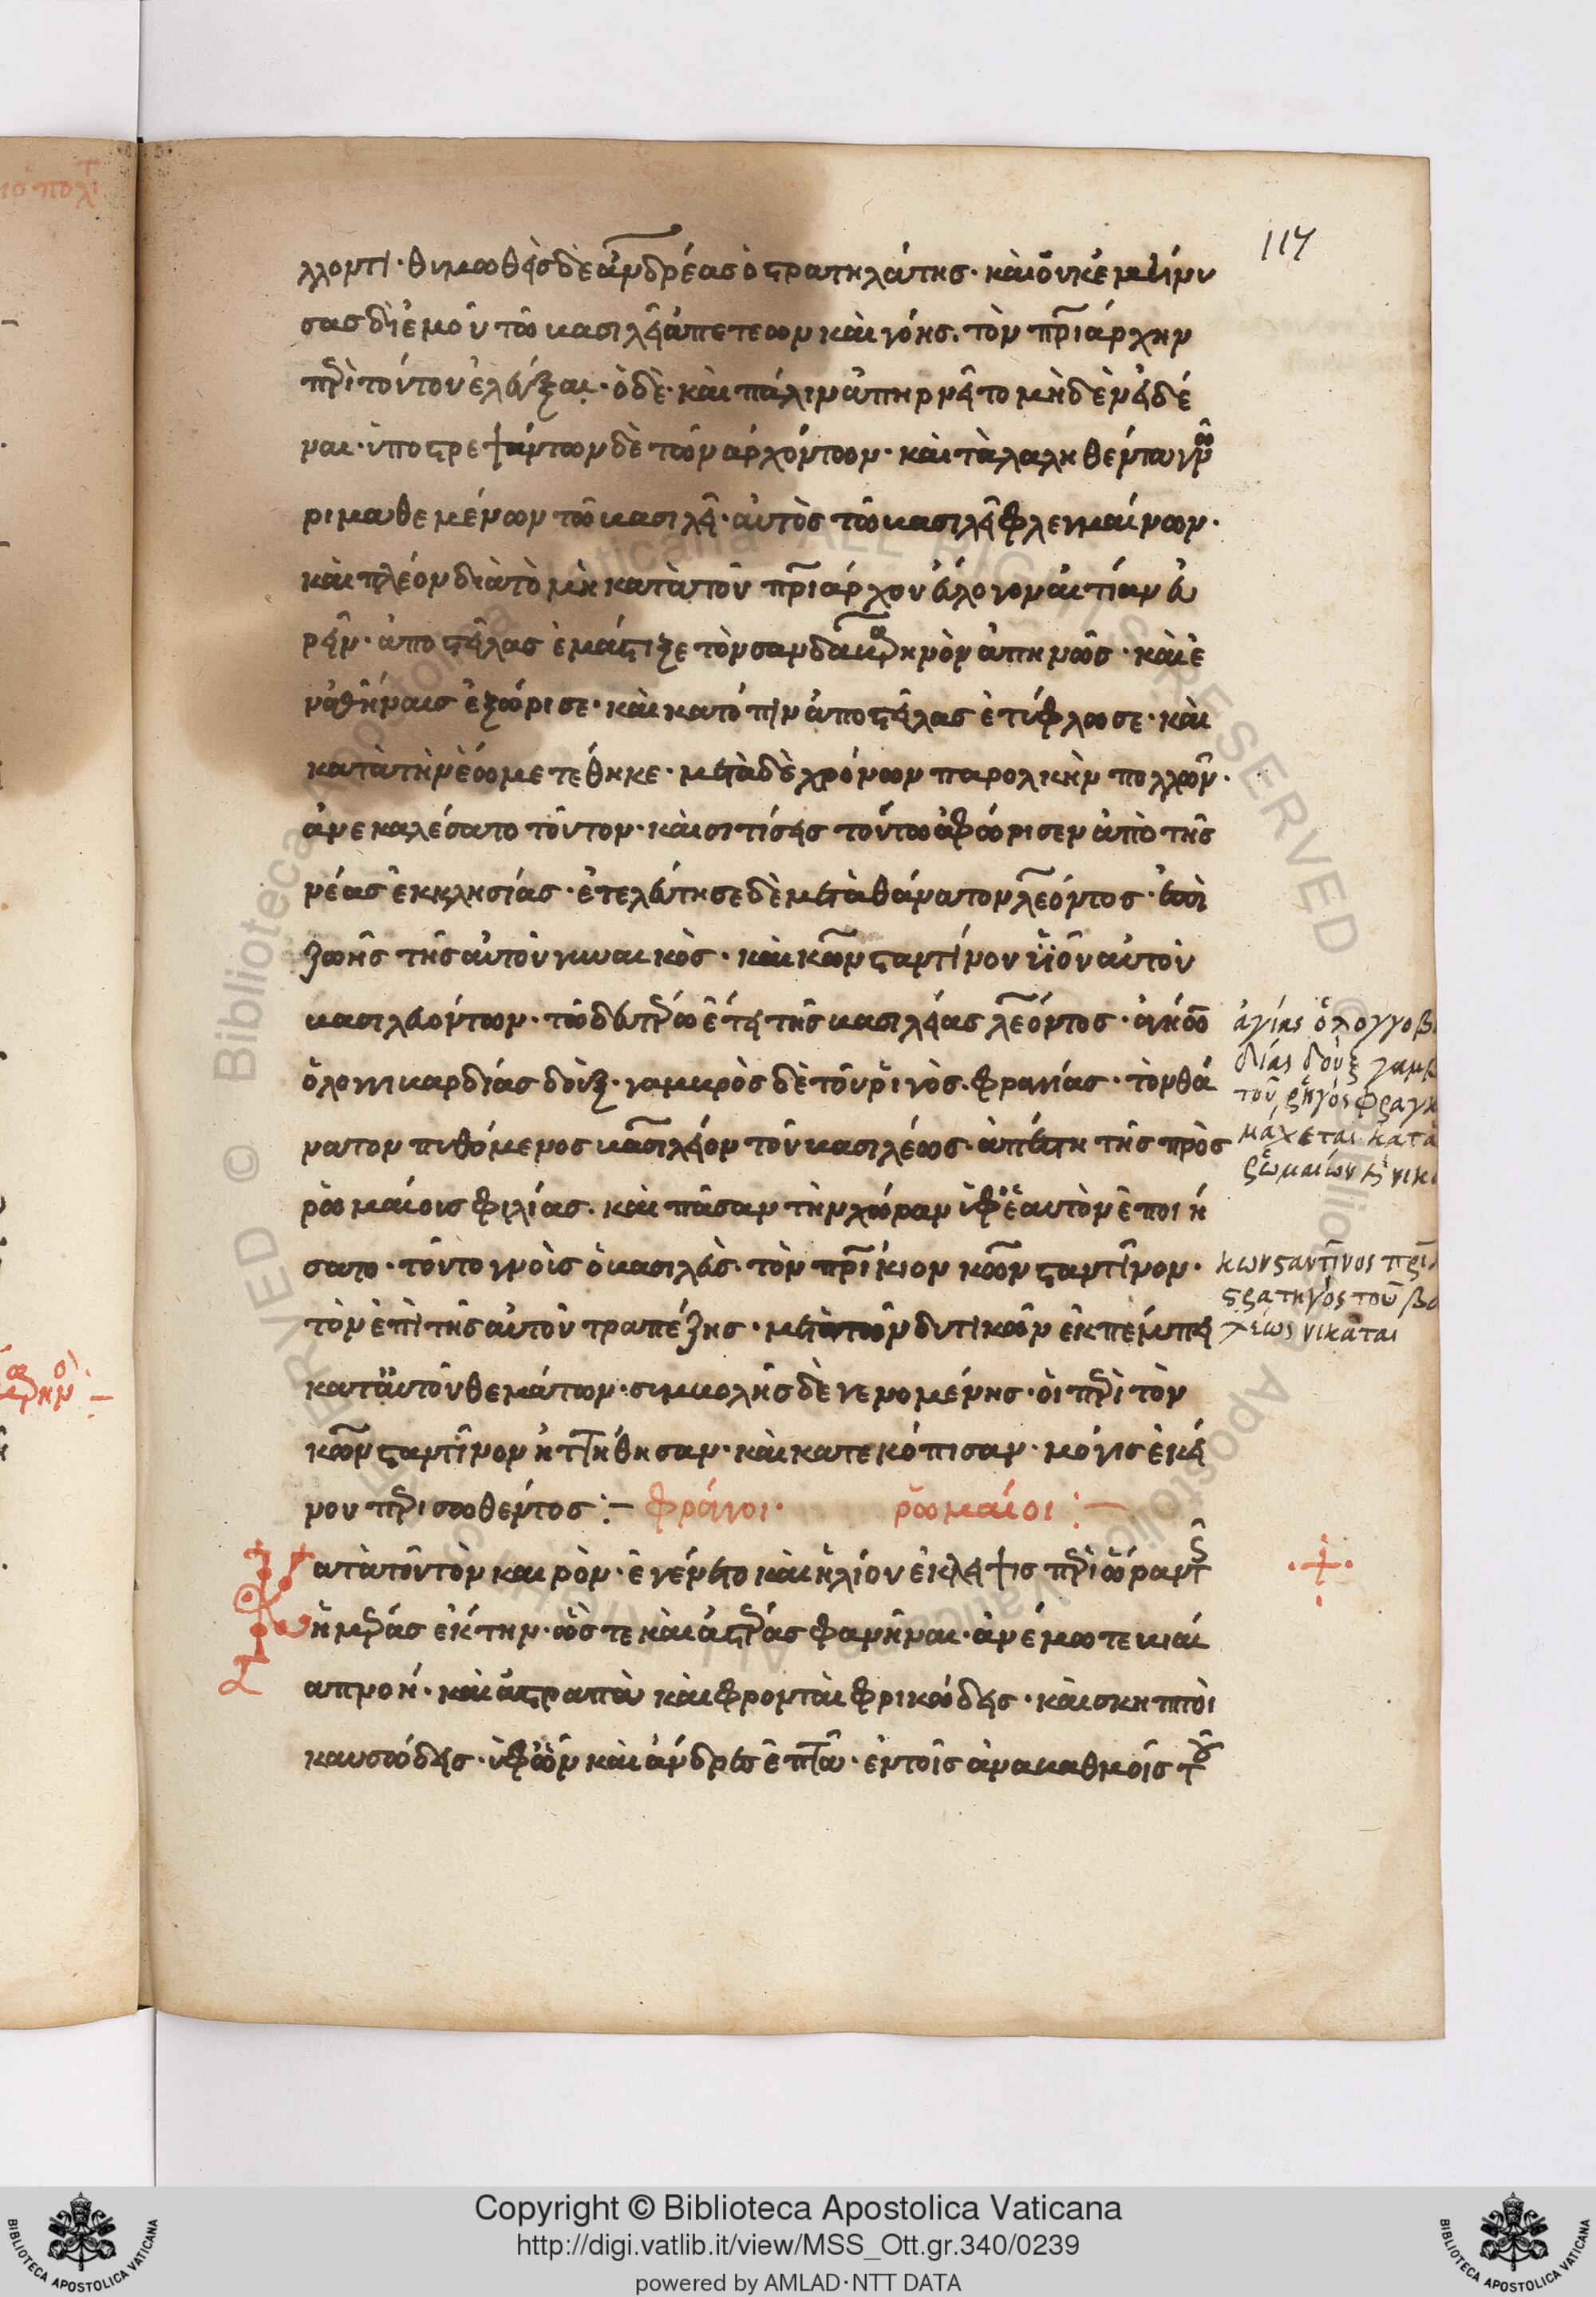 117
λλοντι· θυμωθεὶς δὲ ἀνδρέας ὁ στρατηλάτης· καὶ οὐκ ἐμμίνυ
σας δι' ἐμοῦ τῶ βασιλεῖ ἀπετεων καὶ γόης. τὸν πριάρχην
περὶ τούτου ἐλέγξαι· ὁ δὲ· καὶ πάλιν ἀπηρνεῖτο μὴδὲν εἰδέ
ναι· ὑποστρεψάντων δὲ τῶν αρχόντων· καὶ τὰ λαληθέντα
τῶ βασιλεῖ· αὐτὸς τῶ βασιλεῖ φλεγμαίνων·
καὶ πλέον διὰ τὸ μὴ κατὰ τοῦ πριάρχου εύλογον αἰτίαν εὑ
ρεῖν· ἀποστείλας ἐμάστιζε τὸν σανδαβαρηνὸν ἀπηνῶς· καὶ ἐ
ν ἀθήναις ἐξώρισε· καὶ κατόπιν ἀποστείλας ἐτύφλωσε· καὶ
κατὰ τὴν ἑώ μετέθηκε· μετὰ δὲ χρόνων παρολικὴν πολλῶν·
ἀνεκαλέσατο τοῦτον· καὶ σιτίσεις τούτω ἀφώρισεν ἀπὸ τῆς
νέας ἐκκλησίας· ἐτελεύτησε δὲ μετὰ θάνατον λέοντος· ἐπὶ
ζωῆς τῆς αὐτοῦ γυναικὸς· καὶ κωνσταντίνου ὑϊοῦ αὐτοῦ
βασιλευόντων· τῶ δευτέρω ἔτει τῆς βασιλείας λέοντος·
ὁ λογγιβαρδίας δοὺξ· γαμβρὸς δὲ τοῦ ῥιγὸς φραγγίας· τὸν θά
νατον πυθόμενος βασιλείου τοῦ βασιλέως· ἀπέστη τῆς πρὸς
ῥωμαίοις φιλίας· καὶ πᾶσαν τὴν χώραν ὑφ' ἑαυτὸν ἐποιή
σατο· τοῦτο γνοὺς ὁ βασιλεὺς· τὸν πρίκιον κωνσταντῖνον·
τὸν ἐπὶ τῆς αὐτοῦ τραπέζης· μετὰ τῶν δυτικῶν ἐκπέμπει
κατ' αὐτοῦ θεμάτων· συμβολῆς δὲ γενομένης· οἱ περὶ τὸν
κωνσταντῖνον ἡττήθησαν· καὶ κατεκόπισαν· μόγις ἐκεί
νου περισωθέντος :– φράγγοι· ῥωμαίοι :–
Κατὰ τοῦτον καιρὸν· ἐγένετο καὶ ἡλίου ἐκλειψις περὶ ὥραν τῆς
ἡμέρας εκτην· ὥστε καὶ ἀστέρας φανῆναι· ἀνέμω τε βιαί
α πνοή· καὶ ἀστραπαὶ καὶ βρονταὶ φρικώδεις· καὶ σκηπτοὶ
καυσώδεις· ὑφ' ὧν καὶ ἀνδρες ἑπτὰ· ἐν τοῖς ἀναβαθμοῖς τοῦ
ἀγίας ὁ λογγοβ
δίας δοὺξ γαμβ
τοῦ ῥηγός φραγκ
μάχεται κατὰ
ῥωμαίων κ νικ
κωνσταντῖνος πρι
στρατηγός τοῦ βα
λέως νικᾶται
Copyright © Biblioteca Apostolica Vaticana
http://digi.vatlib.it/view/MSS_Ott.gr.340/0239
powered by AMLAD·NTT DATA
BIBLIOTECA APOSTOLICA VATICANA
BIBLIOTECA APOSTOLICA VATICANA